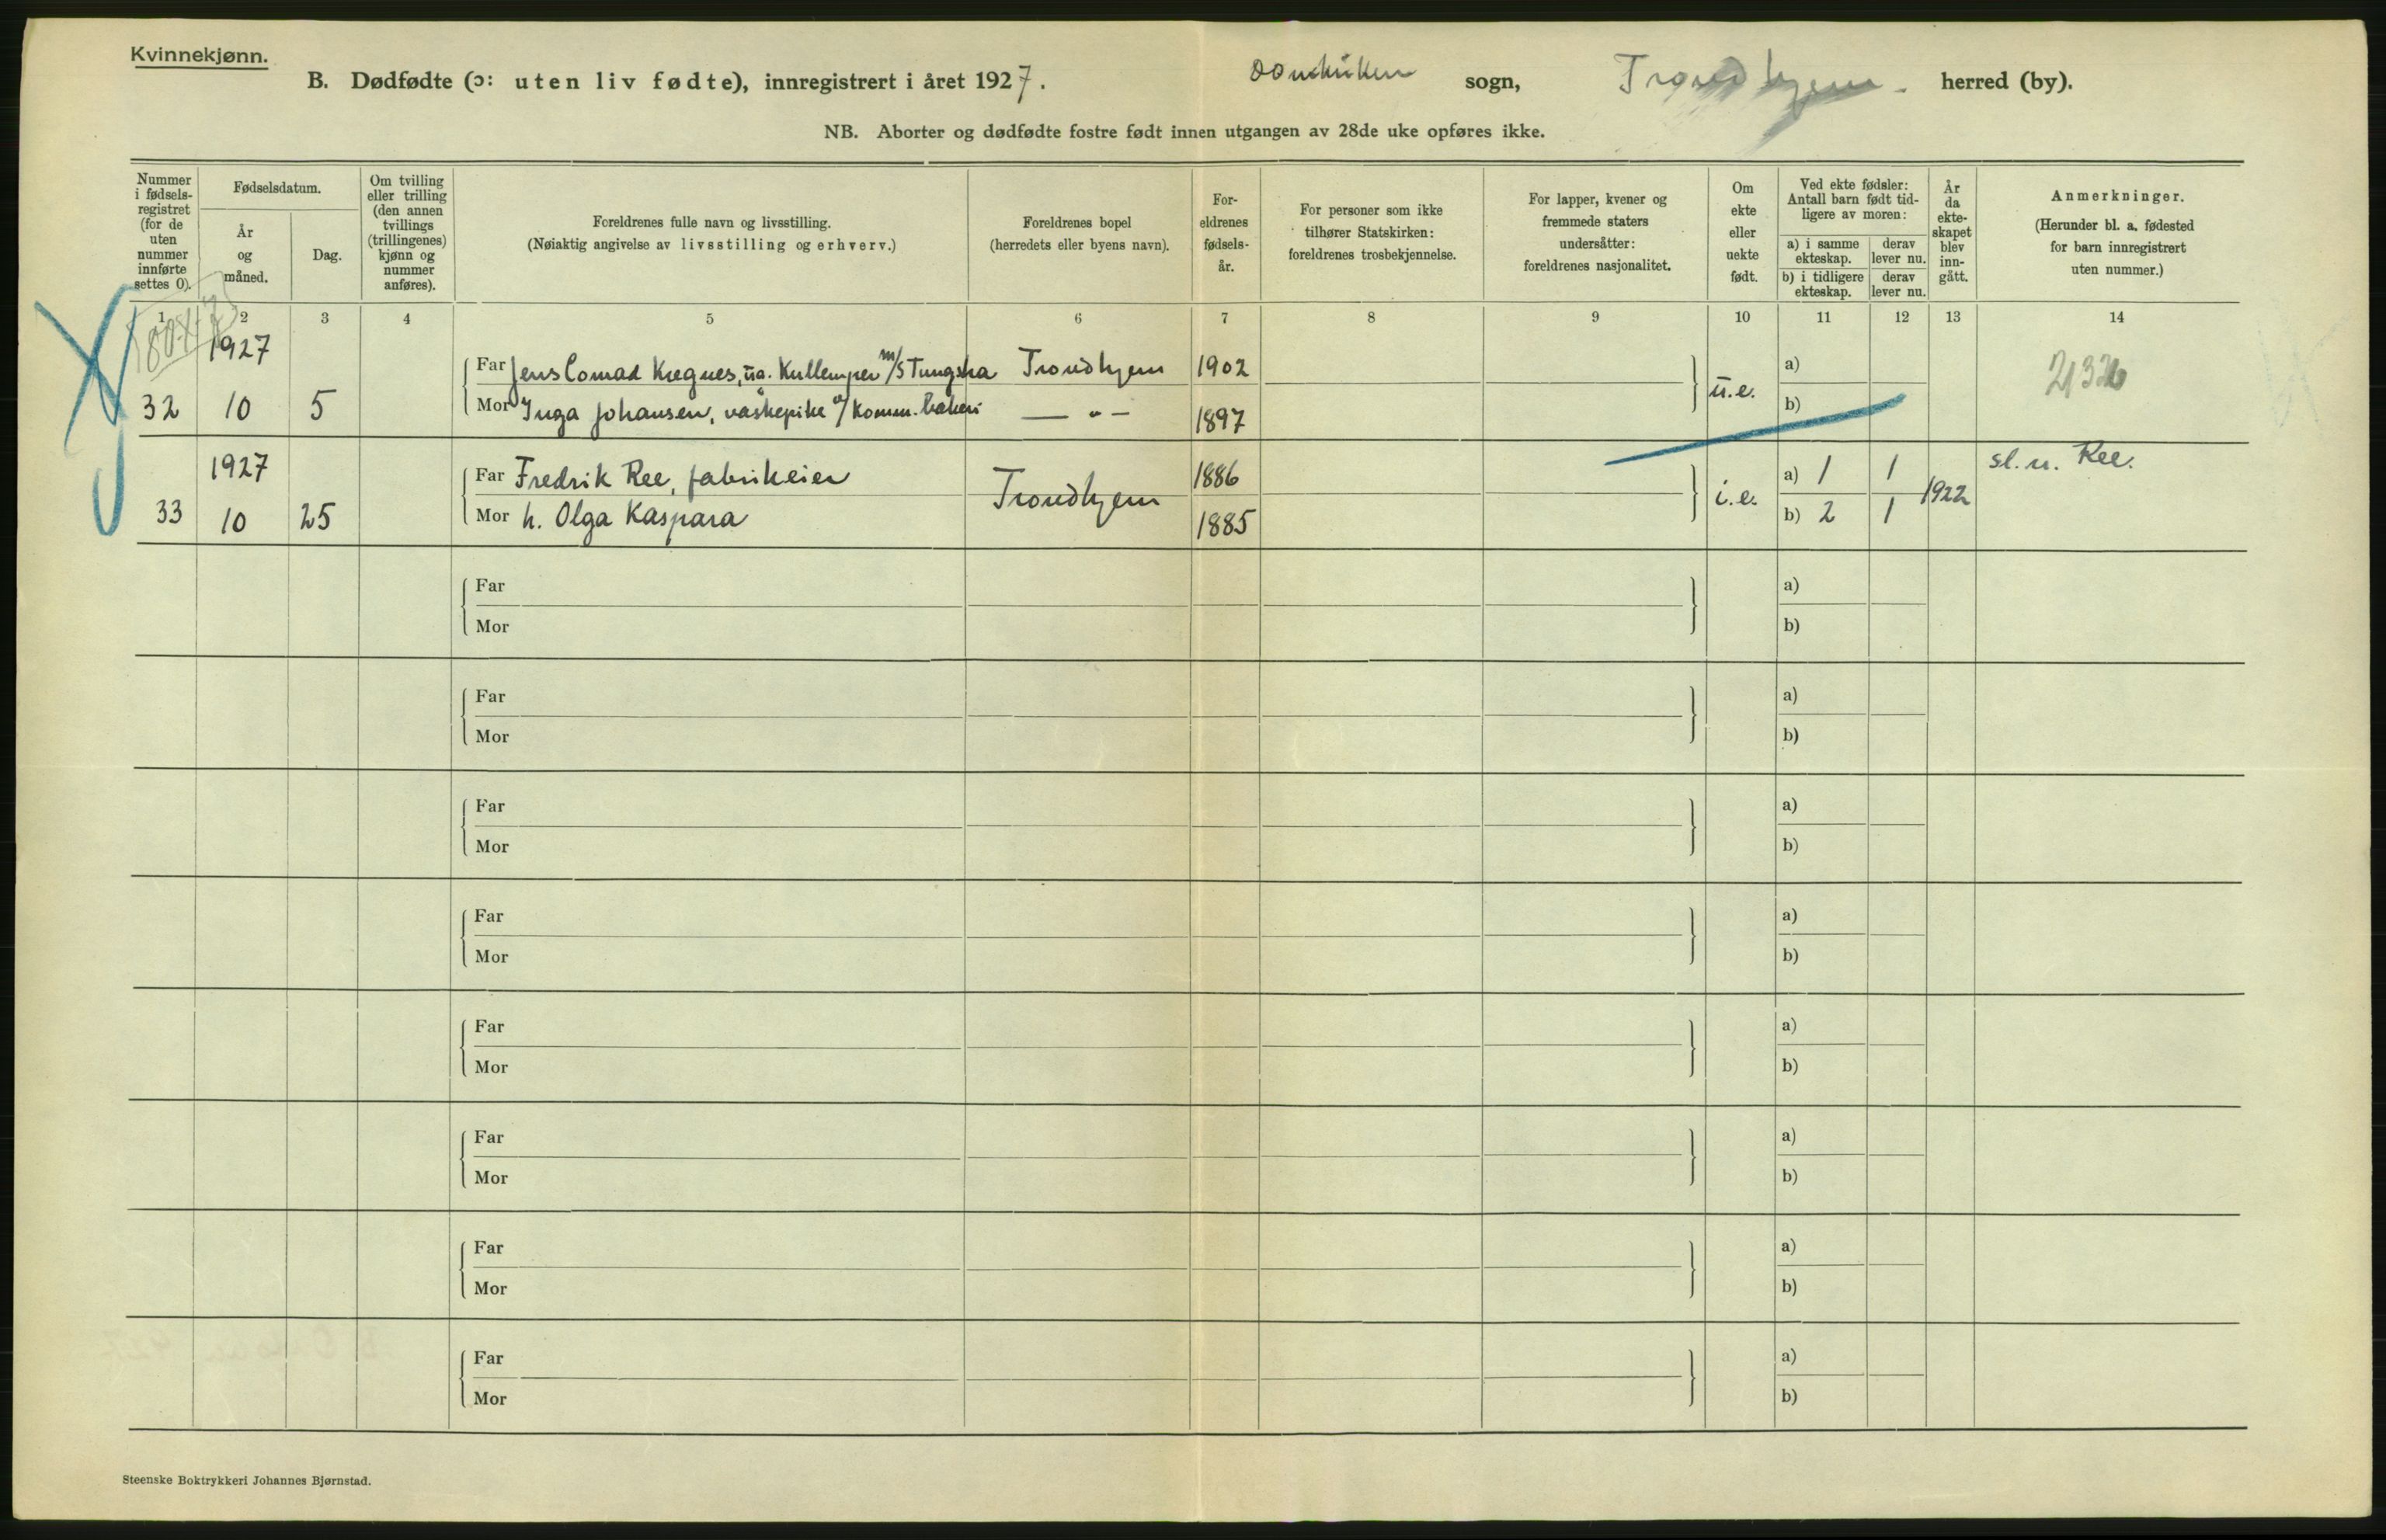 Kvinnekjønn.
B. Dødfødte (ɔ: uten liv fødte), innregistrert i året 1927. Domkirken sogn, Trondhjem. herred (by).
NB. Aborter og dødfødte fostre født innen utgangen av 28de uke opføres ikke.
Nummer i fødsels-registret (for de uten nummer innførte settes 0).
Fødselsdatum.
År og måned.
Dag.
Om tvilling eller trilling (den annen tvillings (trillingenes) kjønn og nummer anføres).
Foreldrenes fulle navn og livsstilling.
(Nøiaktig angivelse av livsstilling og erhverv.)
Foreldrenes bopel
(herredets eller byens navn).
For-eldrenes fødsels-år.
For personer som ikke tilhører Statskirken: foreldrenes trosbekjennelse.
For lapper, kvener og fremmede staters undersåtter: foreldrenes nasjonalitet.
Om ekte eller uekte født.
Ved ekte fødsler: Antall barn født tid-ligere av moren:
a) i samme ekteskap. derav lever nu.
b) i tidligere ekteskap. derav lever nu.
År da ekte-skapet blev inn-gått.
Anmerkninger.
(Herunder bl. a. fødested for barn innregistrert uten nummer.)
1 2 3 4 5 6 7 8 9 10 11 12 13 14
1927 Far Jens Conrad m/s Trondhjem 1902 a)
32 10 5 Mor Inga Johansen, vaskepike v/ Komm. bakeri — " — 1897 u.e. b)
1927 Far Fredrik Ree, fabrikeier Trondhjem 1886 a) 1 1 sl. n. Ree.
33 10 25 Mor h. Olga Kaspara 1885 i.e. b) 2 1 1922
Far a)
Mor b)
Far a)
Mor b)
Far a)
Mor b)
Far a)
Mor b)
Far a)
Mor b)
Far a)
Mor b)
Far a)
Mor b)
Far a)
Mor b)
Steenske Boktrykkeri Johannes Bjørnstad.